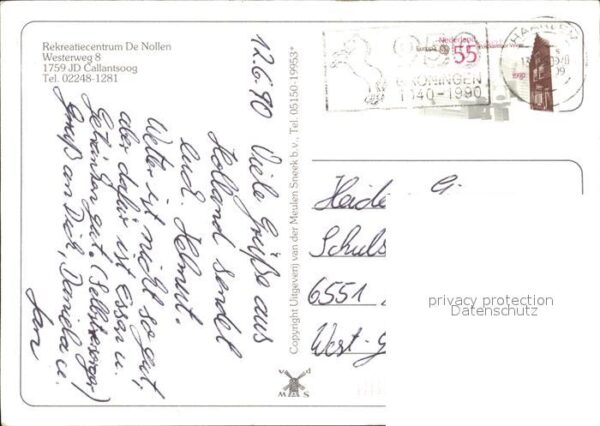 Rekreatiecentrum De Nollen
Westerweg 8
1759 JD Callantsoog
Tel. 02248-1281
12.6.90 Viele Grüße aus
Holland sendet
euch Helmut.
Wetter ist nicht so gut,
aber dafür ist Essen u.
Getränken gut. (Selbstversorger)
Gruß an Dich, Daniela u.
Jan
Copyright Uitgeverij van der Meulen Sneek b.v., Tel. 05150-19953*
v d
M S
Nederland
55
GRONINGEN
1040-1990
HAARLEM
Heide
Schuls
6551
West-G
privacy protection
Datenschutz